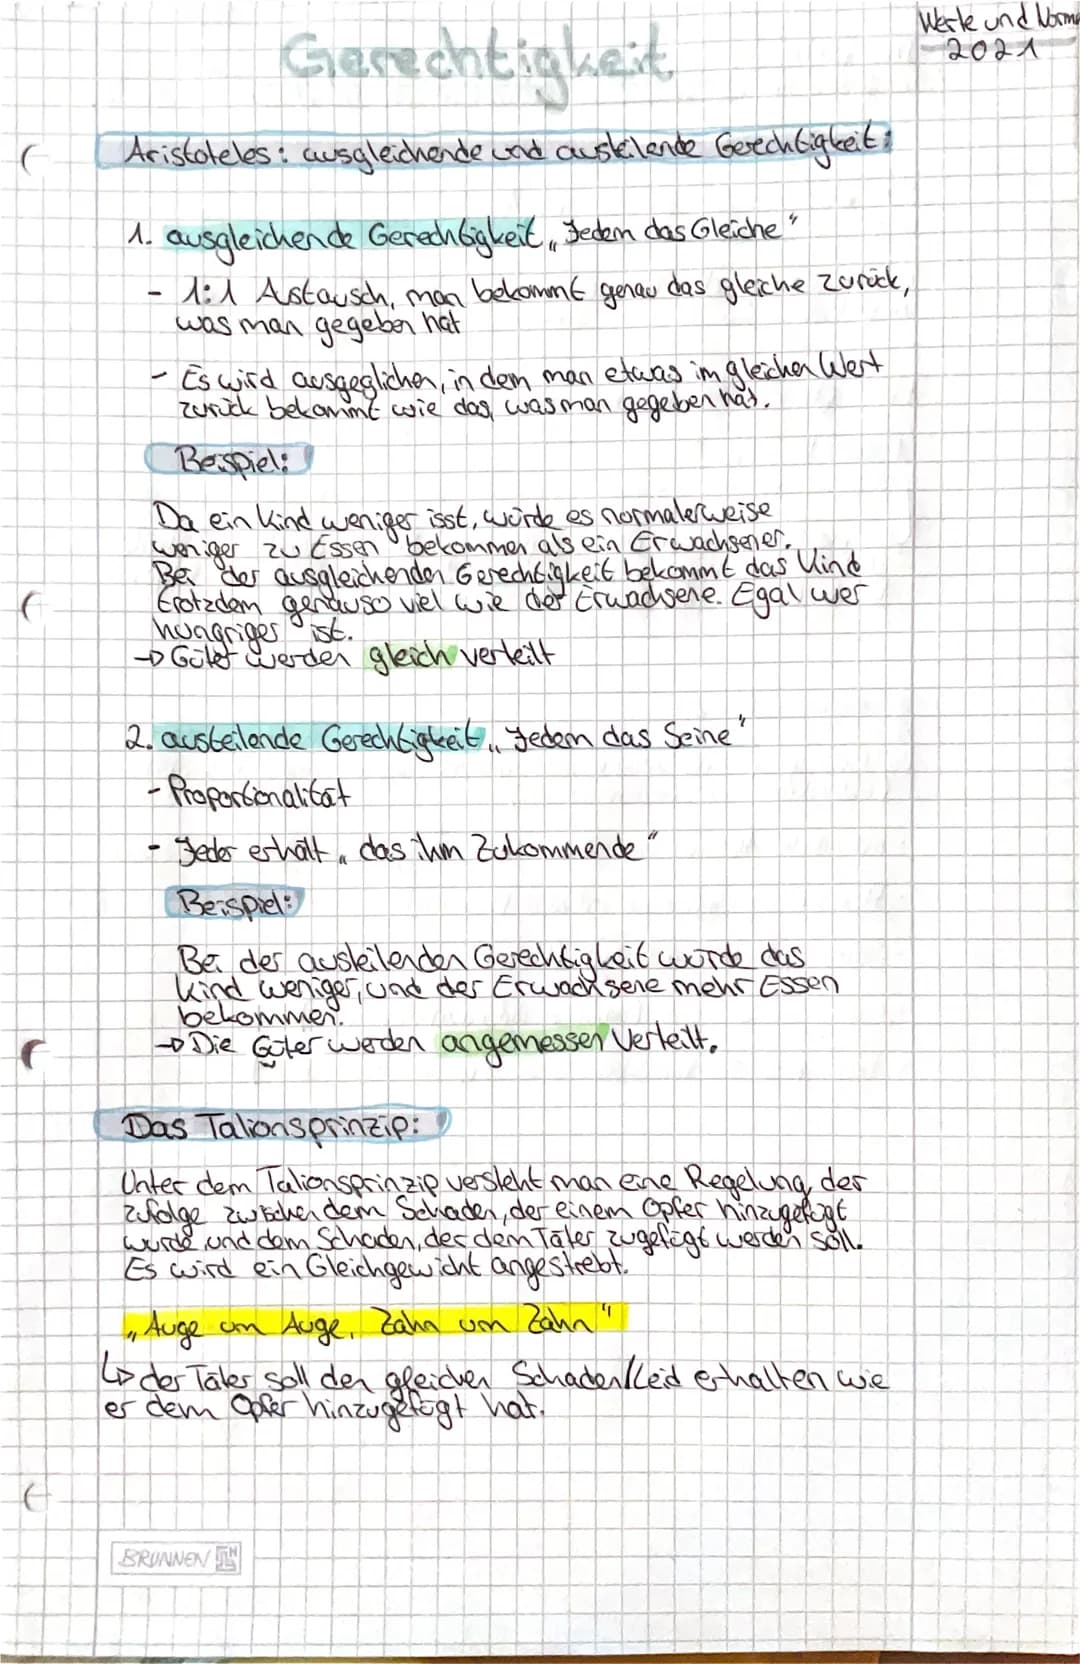 Werte und Norme
2021
Gerechtigkeit
Aristoteles: ausgleichende und austeilende Gerechtigkeit:
1. ausgleichende Gerechtigkeit „Jedem das Gleiche“
- 1:1 Austausch, man bekommt genau das gleiche zurück,
was man gegeben hat
- Es wird ausgeglichen, in dem man etwas im gleichen Wert
zurück bekommt wie das, was man gegeben hat.
Beispiel:
Da ein Kind weniger isst, würde es normalerweise
weniger zu Essen bekommen als ein Erwachsener.
Bei der ausgleichenden Gerechtigkeit bekommt das Kind
trotzdem genauso viel wie der Erwachsene. Egal wer
hungriger ist.
→ Güter werden gleich verteilt
2. austeilende Gerechtigkeit „Jedem das Seine“
- Proportionalität
- Jeder erhält „das ihm Zukommende“
Beispiel:
Bei der austeilenden Gerechtigkeit würde das
Kind weniger, und der Erwachsene mehr Essen
bekommen.
→ Die Güter werden angemessen Verteilt.
Das Talionsprinzip:
Unter dem Talionsprinzip versteht man eine Regelung, der
zufolge zwischen dem Schaden, der einem Opfer hinzugefügt
wurde und dem Schaden, der dem Täter zugefügt werden soll.
Es wird ein Gleichgewicht angestrebt.
„Auge um Auge, Zahn um Zahn“
↳ der Täter soll den gleichen Schaden/Leid erhalten wie
er dem Opfer hinzugefügt hat.
BRUNNEN